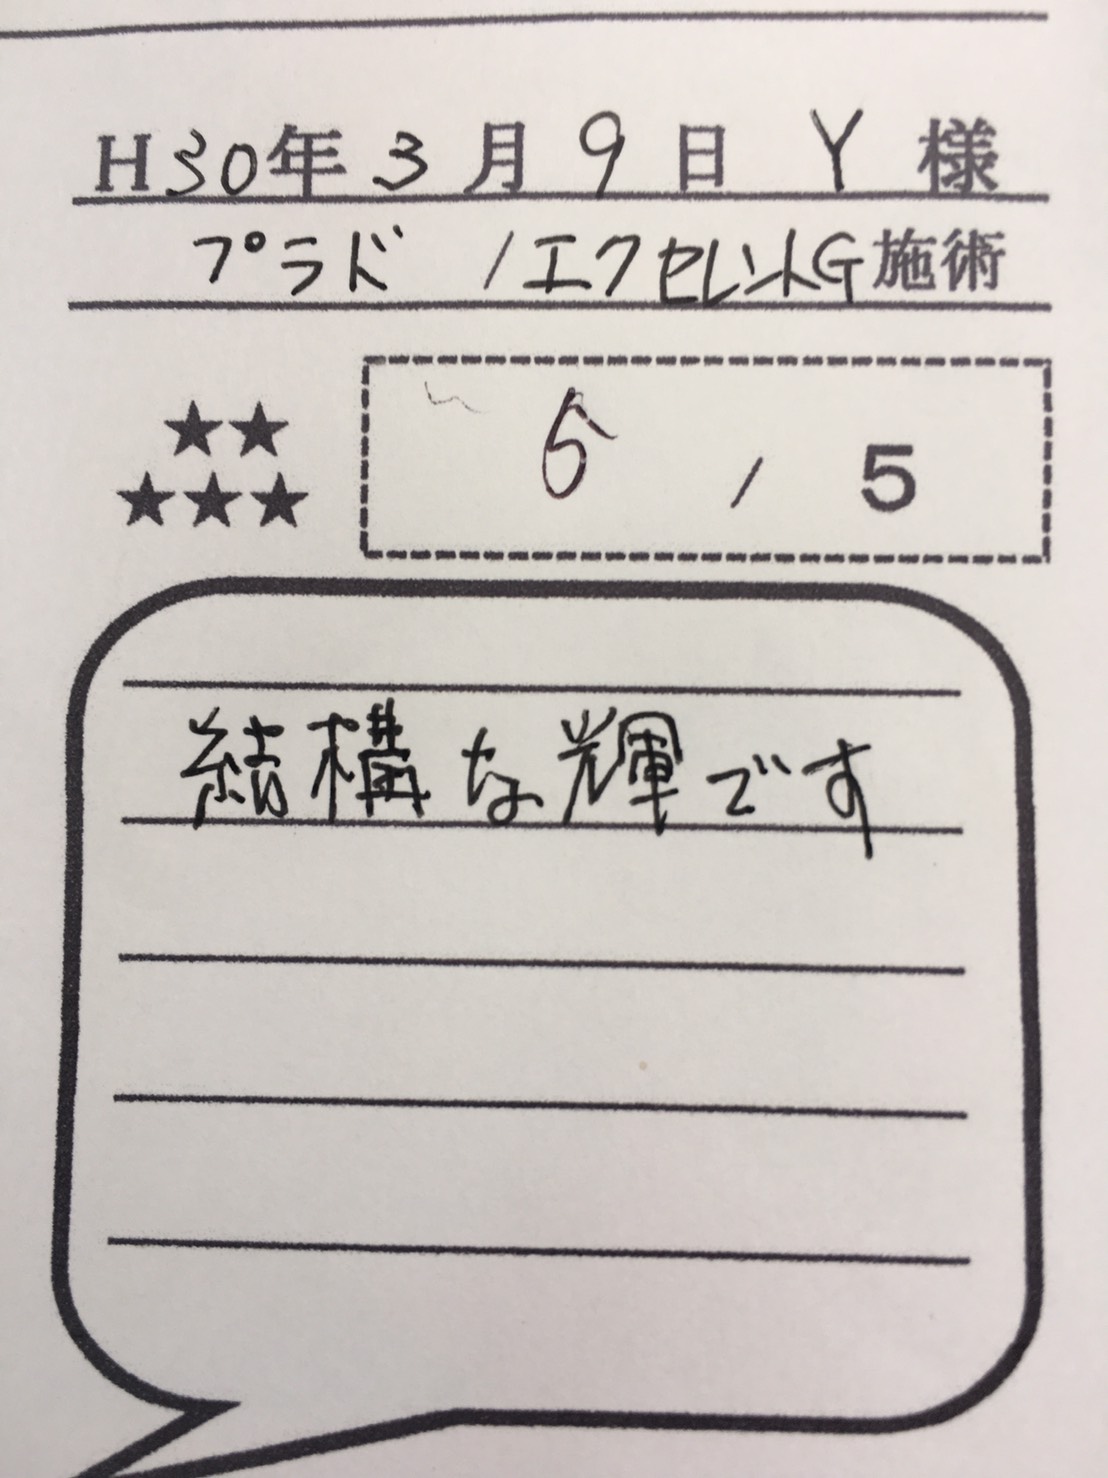 H30年3月9日 Y 様
プラド /エクセレントG施術
★★
★★★
5 / 5
結構な輝です